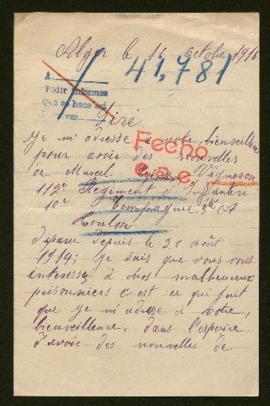 Alger le 16 octobre 1916
41,781
A
Pedir informes
Que se hace
Sire
Je m'adresse a votre bienveillance
pour avoir des nouvelles
Fecho
de Marcel Vigneron
112e Regiment d'Infanterie
10e Compagnie
Toulon
disparu depuis le 20 août
1914; Je sais que vous vous
interessé a nos malheureux
prisonniers c'est ce qui fait
que je m'adresse a votre,
bienveillence, dans l'espoire
d'avoir des nouvelles de